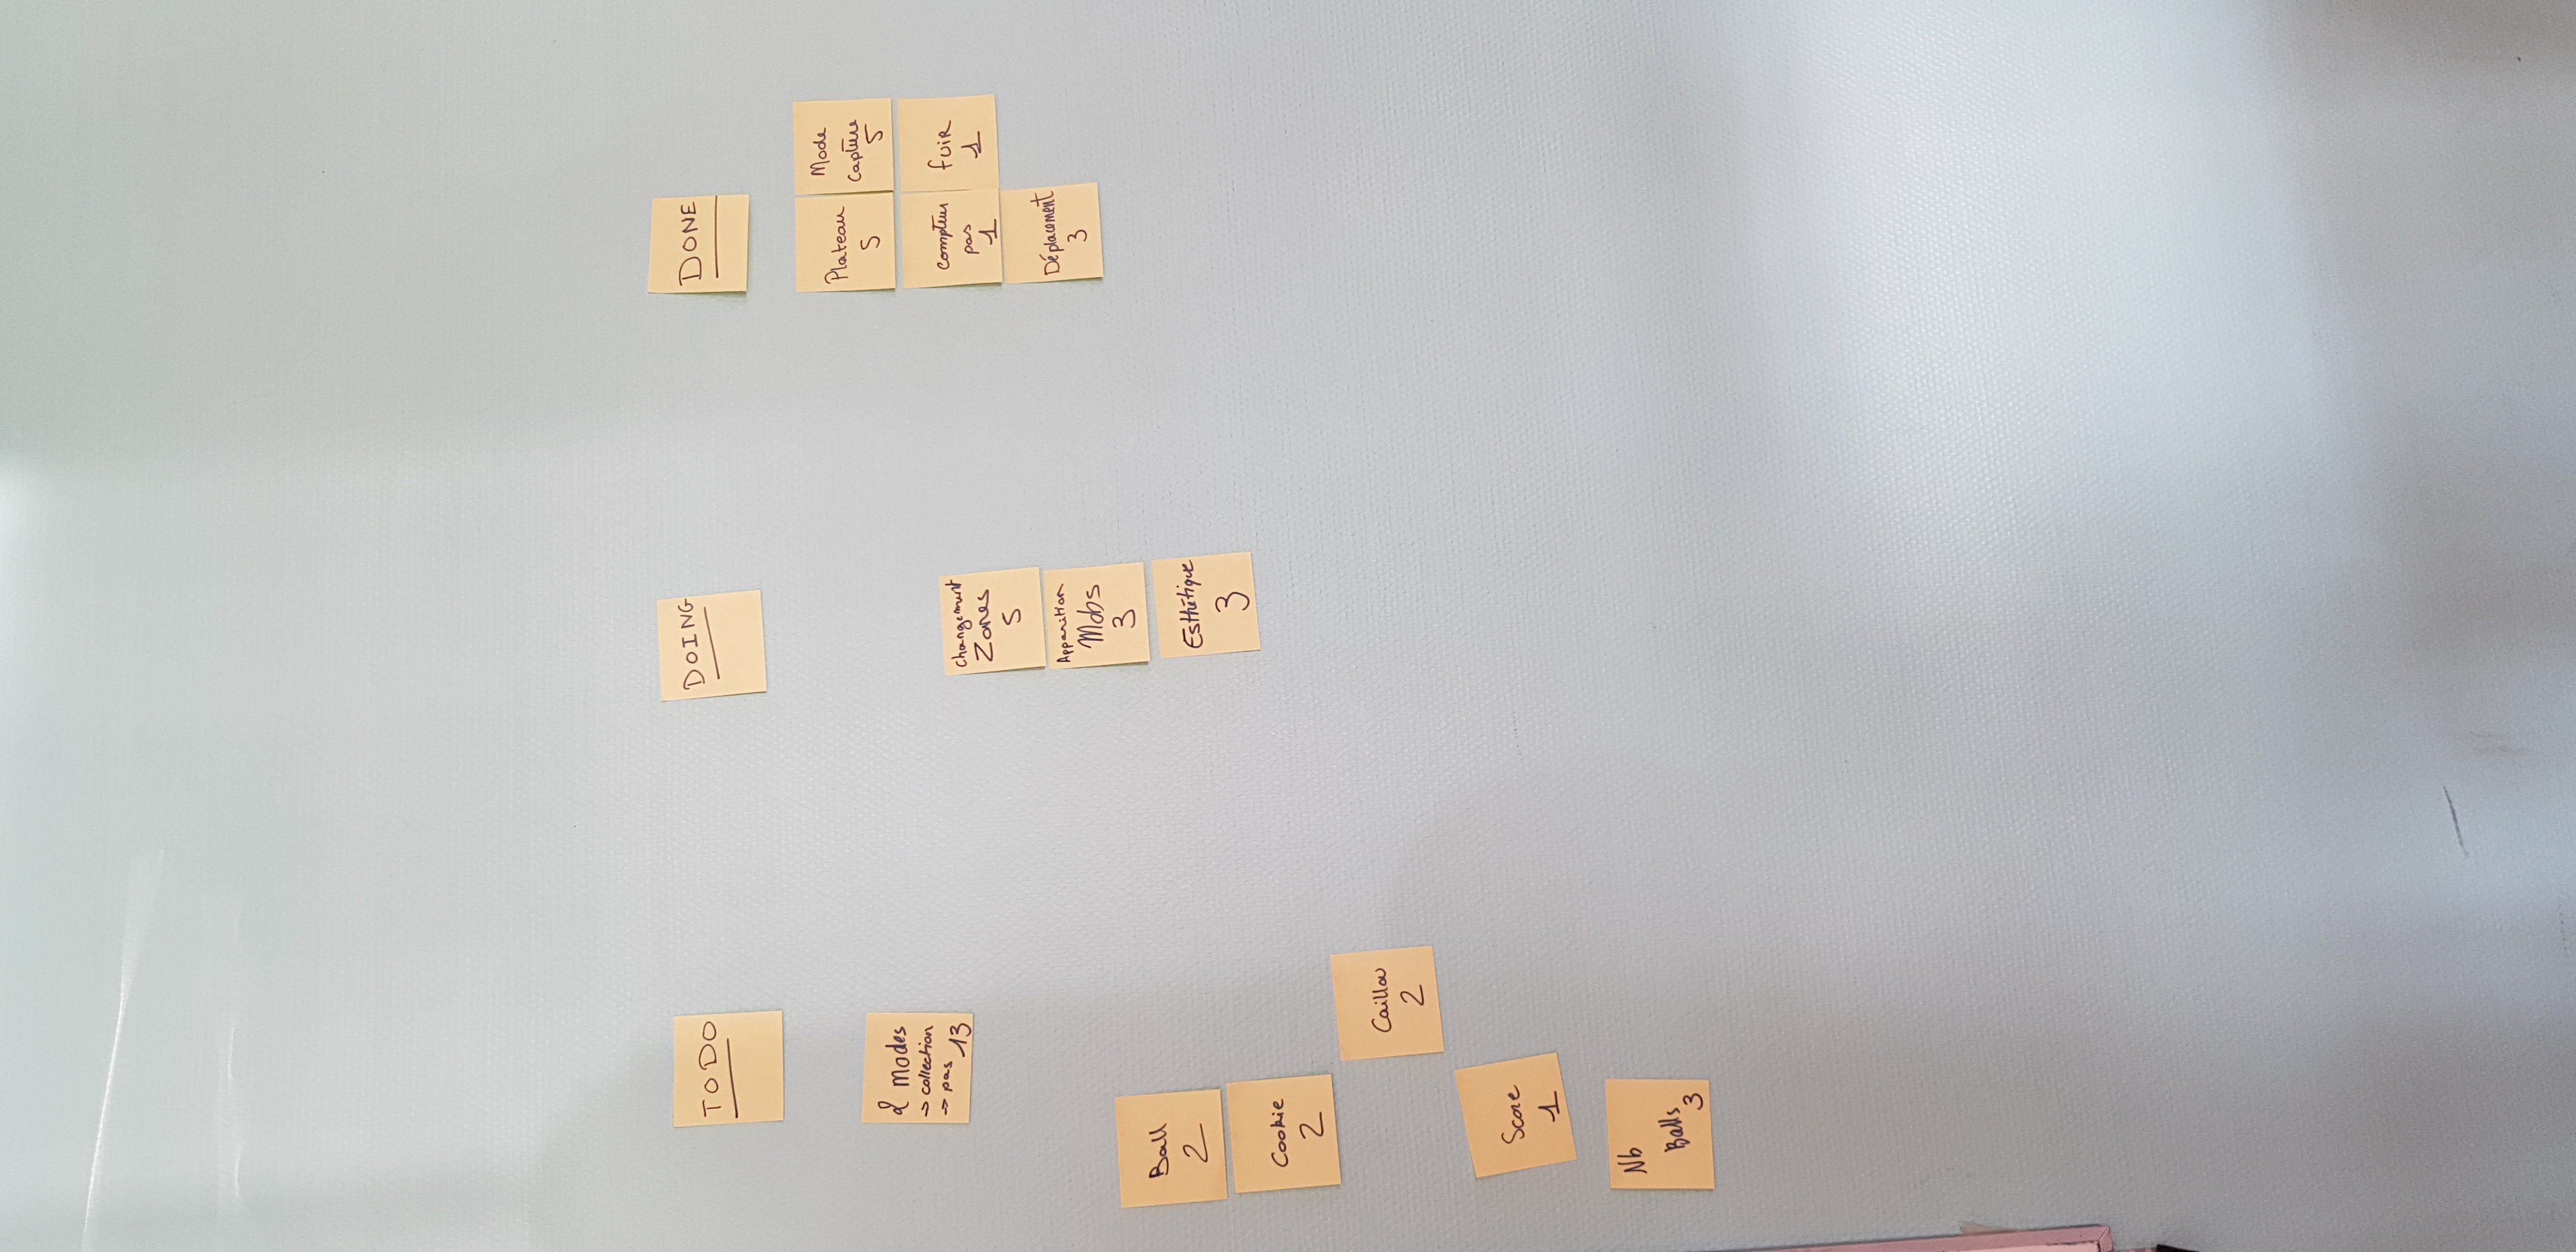 TODO
2 modes
→ collection
→ pas 13
Ball
2
Cookie
2
Caillou
2
Score
1
Nb
Balls
3
DOING
Changement
Zones
5
Apparition
Mobs
3
Esthétique
3
DONE
Plateau
5
Mode
Capture
5
compteur
pas
1
fuir
1
Déplacement
3